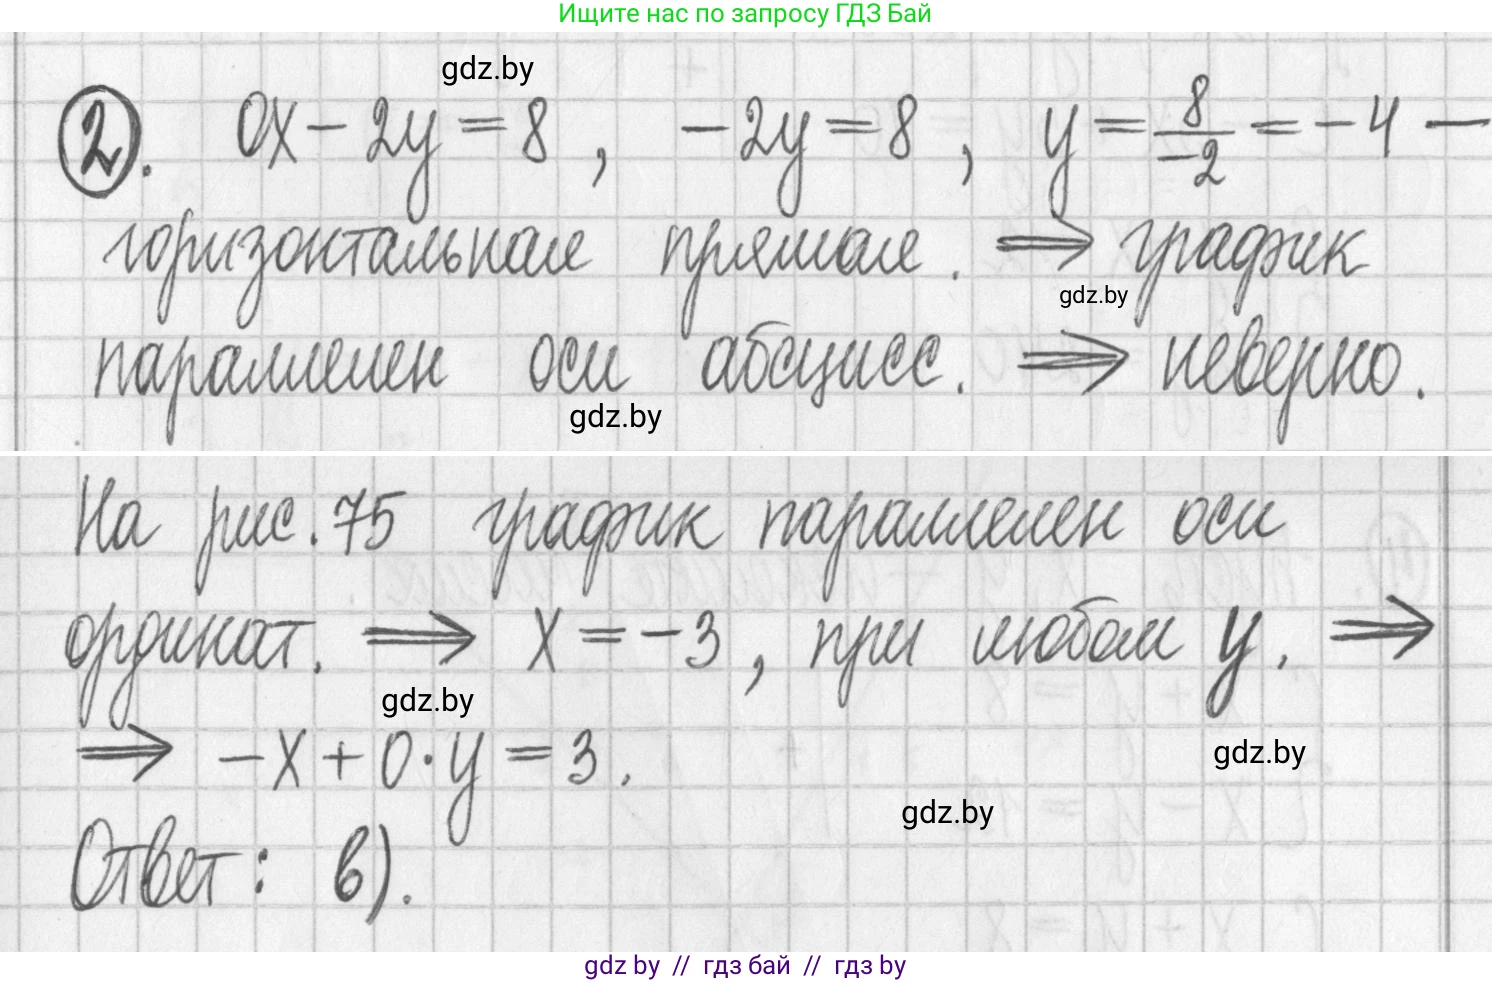 Ищите нас по запросу ГДЗ Бай
gdz.by
2. 0x - 2y = 8 , -2y = 8 , y = 8/-2 = -4 —
горизонтальная прямая. ⇒ график
gdz.by
параллелен оси абсцисс. ⇒ неверно.
gdz.by
На рис. 75 график параллелен оси
ординат. ⇒ x = -3 , при любом y. ⇒
gdz.by
⇒ -x + 0·y = 3.
gdz.by
gdz.by
Ответ: в).
gdz by // гдз бай // гдз by